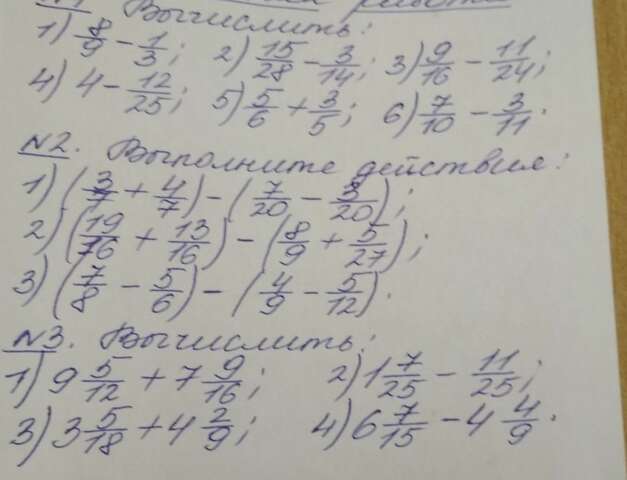 №1 Вычислить:
1) 8/9 - 1/3; 2) 15/28 - 3/14; 3) 9/16 - 11/24;
4) 4 - 12/25; 5) 5/6 + 3/5; 6) 7/10 - 3/11.
№2. Выполните действия:
1) (3/7 + 4/7) - (7/20 - 3/20);
2) (19/16 + 13/16) - (8/9 + 5/27);
3) (7/8 - 5/6) - (4/9 - 5/12).
№3. Вычислить:
1) 9 5/12 + 7 9/16; 2) 1 7/25 - 11/25;
3) 3 5/18 + 4 2/9; 4) 6 7/15 - 4 4/9.